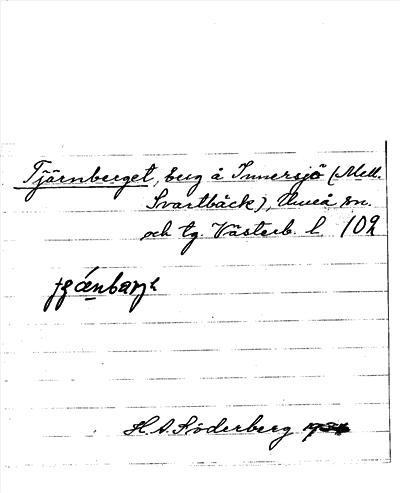 Tjärnberget, berg å Innersjö (Mell.
Svartbäck), Umeå sn.
och tg. Västerb. l. 102
H. A. Söderberg